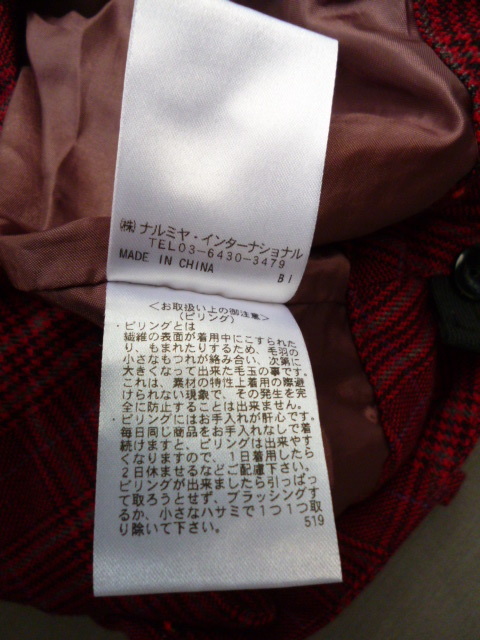 (株)ナルミヤ・インターナショナル
TEL03-6430-3479
MADE IN CHINA
BI
<お取扱い上の御注意>
(ピリング)
・ピリングとは
繊維の表面が着用中にこすられた
り、もまれたりするため、毛羽の
小さなもつれが絡み合い、次第に
大きくなって出来た毛玉の事です。
これは、素材の特性上着用の際避
けられない現象で、その発生を完
全に防止することは出来ません。
・ピリングにはお手入れが肝心です。
毎日同じ商品をお手入れなしで着
続けますと、ピリングは出来やす
くなりますので、1日着用したら
2日休ませるなどご配慮下さい。
ピリングが出来ましたら引っぱっ
て取ろうとせず、ブラッシングす
るか、小さなハサミで1つ1つ取
り除いて下さい。
519